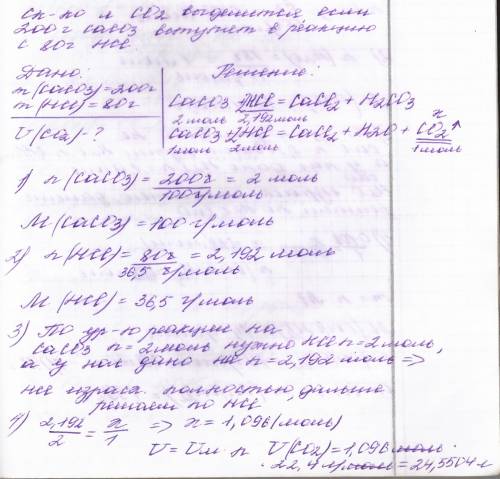 Ск-ко л CO2 выделится, если
200г CaCO3 вступет в реакцию
с 80г HCl.
Дано: Решение:
m(CaCO3)=200г
m(HCl)=80г
V(CO2)-?
CaCO3+2HCl=CaCl2+H2CO3
2 моль 2,192моль
x
CaCO3+2HCl=CaCl2+H2O+CO2↑
1моль 2моль 1моль
1) n(CaCO3)=200г/100г/моль=2 моль
M(CaCO3)=100 г/моль
2) n(HCl)=80г/36,5 г/моль=2,192 моль
M(HCl)=36,5 г/моль
3) По ур-ю реакции на
CaCO3 n=2моль нужно HCl n=2моль,
а у нас дано n=2,192 моль =>
HCl израсх. полностью, дальше
решаем по HCl
4) 2,192/2=x/1 => x=1,096(моль)
V=Vм·n V(CO2)=1,096 моль·
·22,4 л/моль=24,5504 л